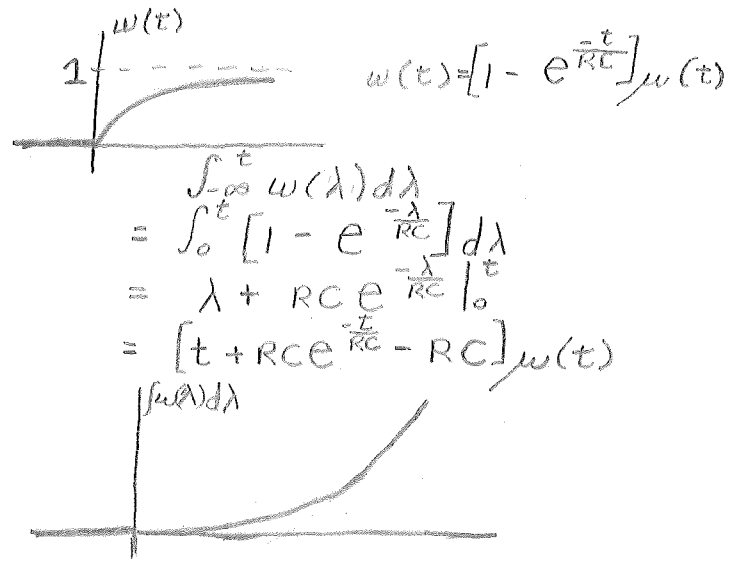 w(t)
1
w(t)=[1 - e^{-t/RC}]μ(t)
∫_{-∞}^{t} w(λ)dλ
= ∫_{0}^{t} [1 - e^{-λ/RC}]dλ
= λ + RC e^{-λ/RC} |_{0}^{t}
= [t + RCe^{-t/RC} - RC]μ(t)
∫w(λ)dλ